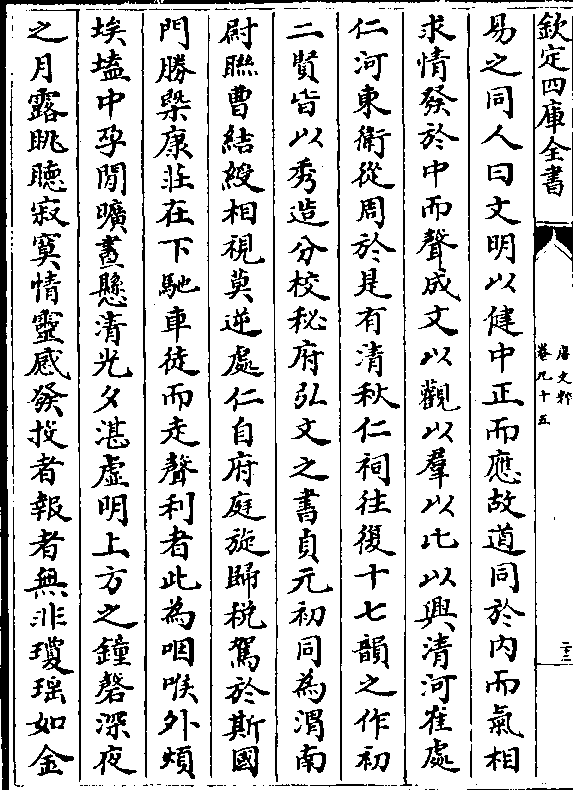 欽定四庫全書
唐文粹
卷九十五
二十三
易之同人曰文明以健中正而應故道同於内而氣相
求情發於中而聲成文以觀以羣以比以興清河崔處
仁河東衛從周於是有清秋仁祠往復十七韻之作初
二賢皆以秀造分校秘府弘文之書貞元初同為渭南
尉聮曹結綬相視莫逆處仁自府庭旋歸税駕於斯國
門勝槩康莊在下馳車徒而走聲利者此為咽喉外煩
埃𡏖中孕閒曠晝懸清光夕湛虚明上方之鐘磬深夜
之月露眺聽寂寞情靈感發投者報者無非瓊瑶如金